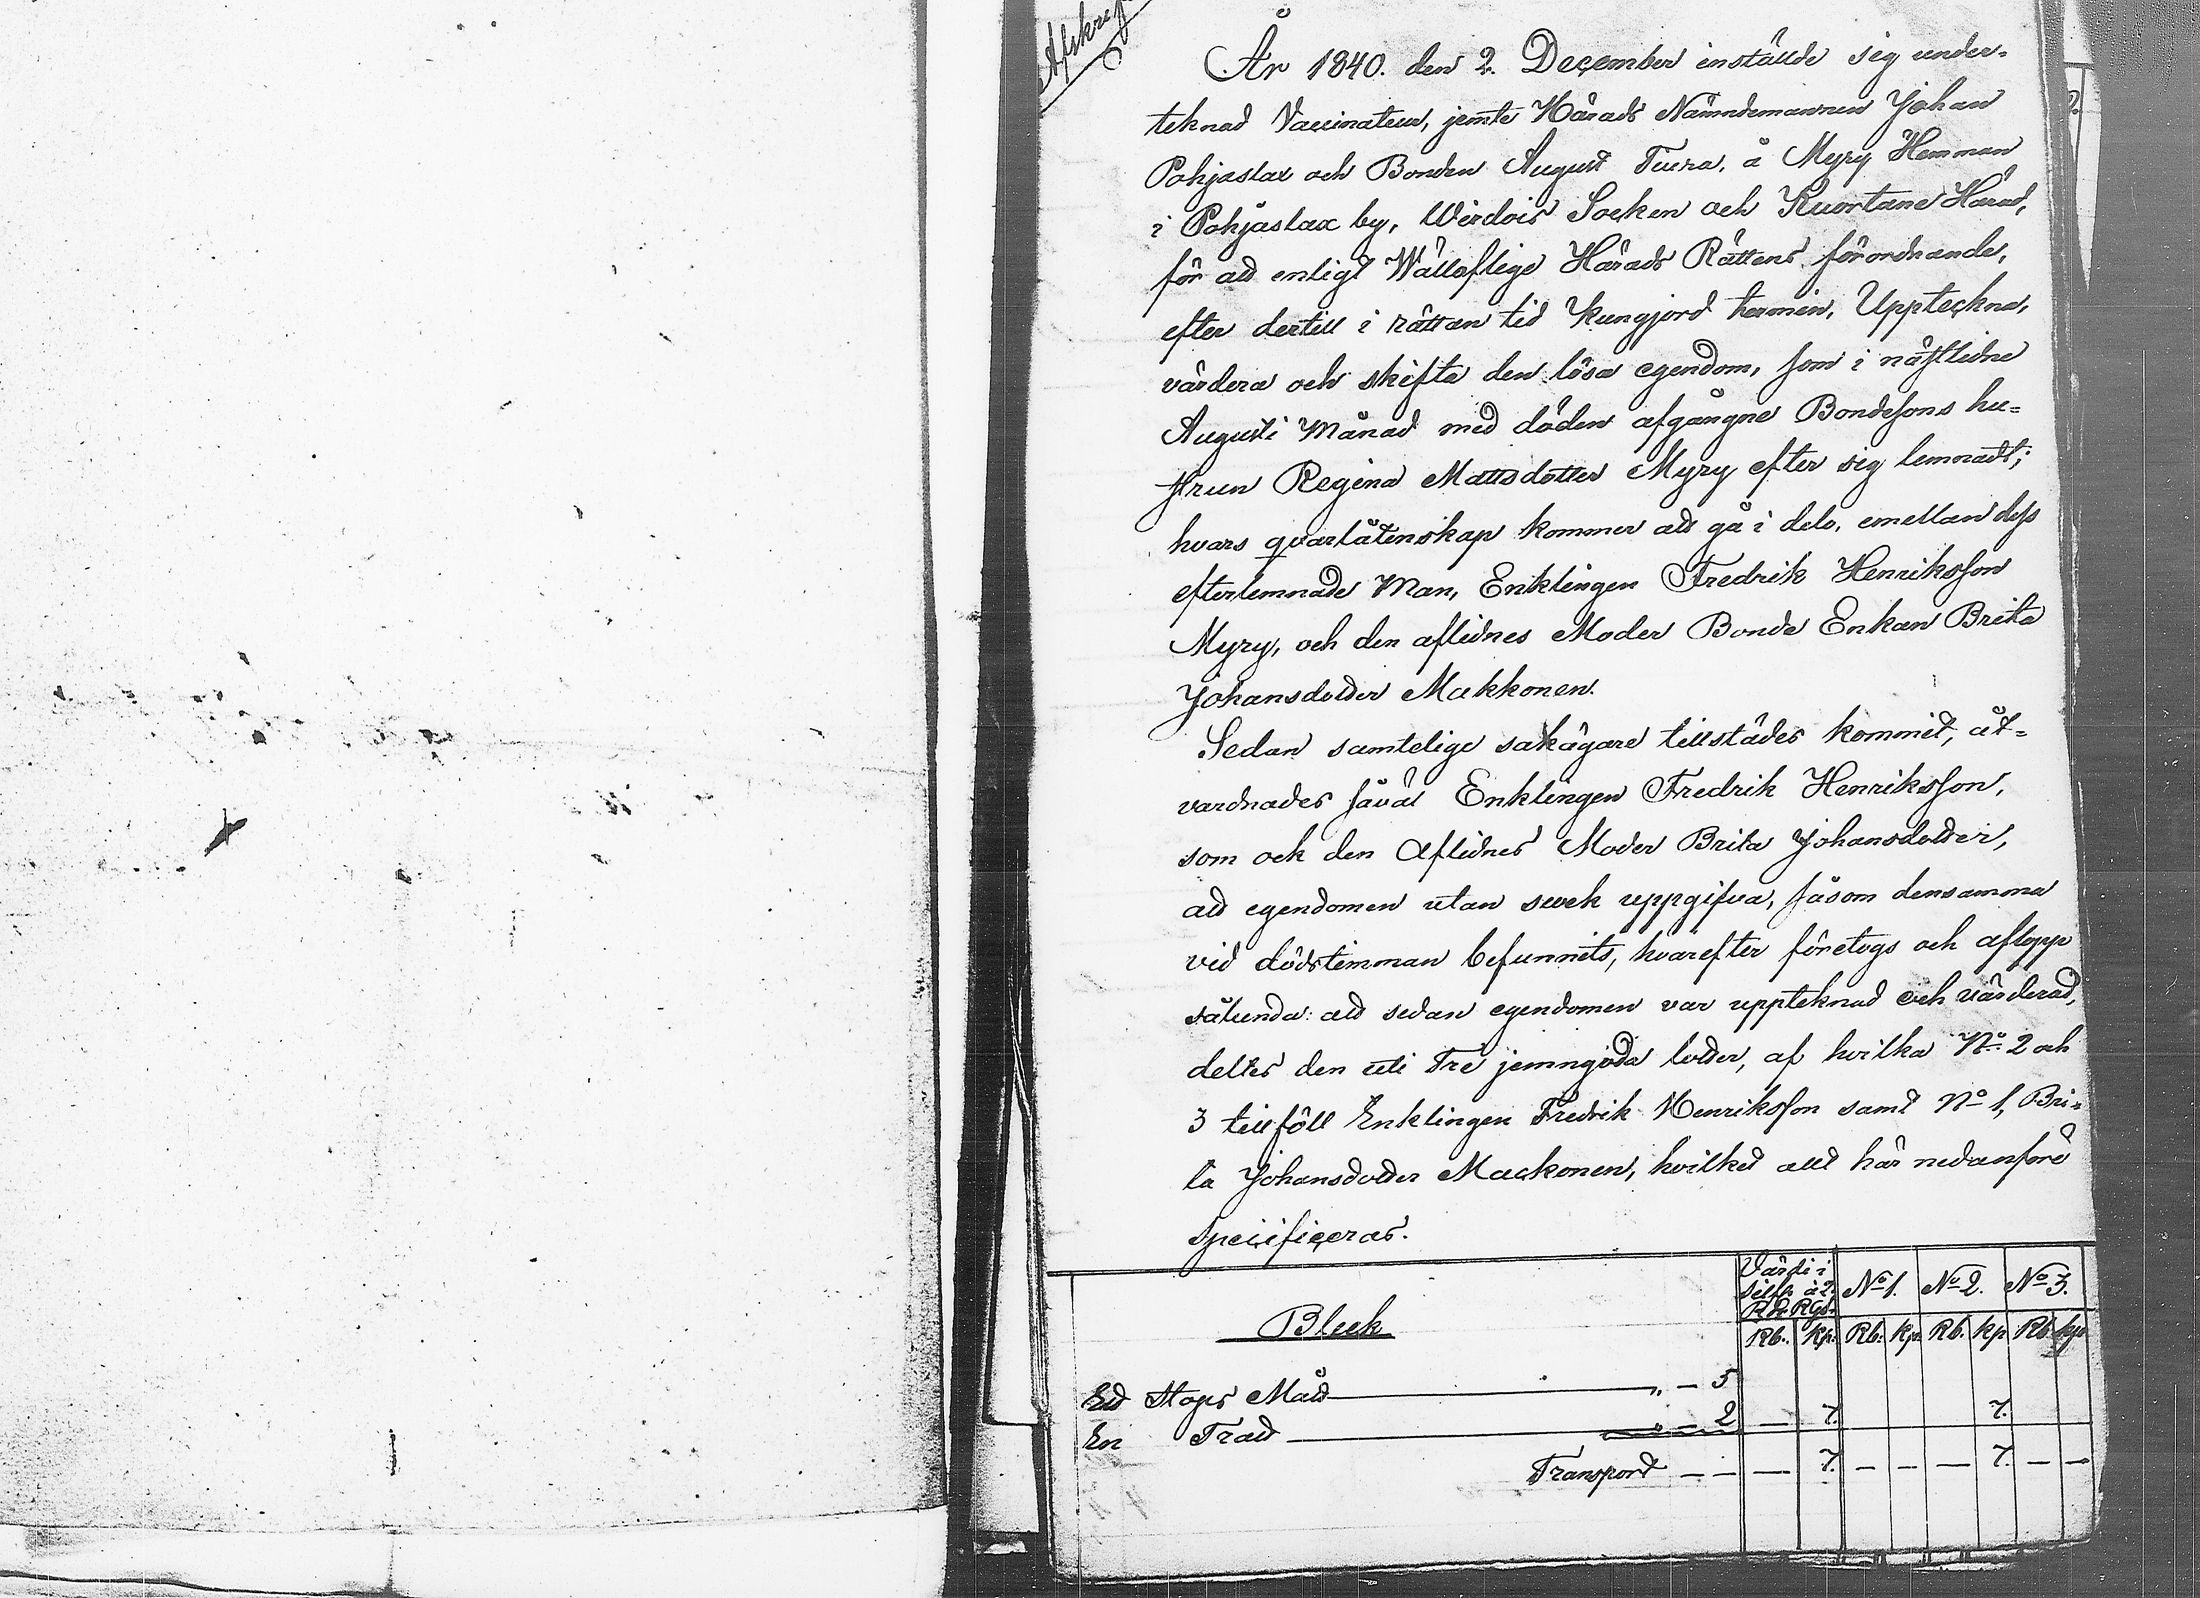 Afskrift
År 1840. den 2. December inställde sig under-
teknad Vaccinateur, jemte Härads Nämndemannen Johan
Pohjaslax och Bonden August Tiura, å Myry Hemman
i Pohjaslax by, Wirdois Socken och Kuortane Härad,
för att enligt Wälloflige Härads Rättens förordnande,
efter dertill i rättan tid kungjord termin, Uppteckna,
värdera och skifta den lösa egendom, som i nästledne
Augusti Månad med döden afgångne Bondesons hu-
strun Regina Mattsdotter Myry efter sig lemnadt;
hvars qvarlåtenskap kommer att gå i delo, emellan dess
efterlemnade Man, Enklingen Fredrik Henriksson
Myry, och den aflidnes Moder Bonde Enkan Brita
Johansdotter Makkonen.
Sedan samtelige sakägare tillstädes kommit, åt-
varnades såväl Enklingen Fredrik Henriksson,
som ock den Aflidnes Moder Brita Johansdotter,
att egendomen utan svek uppgifva, såsom densamma
vid dödstimman befunnits, hvarefter företogs och aflopp
sålunda: att sedan egendomen var uppteknad och värderad,
deltes den uti Tre jemngoda lotter, af hvilka No 2 och
3 tillföll Enklingen Fredrik Henriksson samt No 1, Bri-
ta Johansdotter Mackonen, hvilket allt här nedanföre
specificeras.
Värde i No 1. No 2. No 3.
silfr à 2
Rdr RGs.
Bleck Rb. Kp. Rb. Kp. Rb. Kp. Rb. Kp.
Ett Stops Mått " - 5
En Tratt " - 2 — 7. 7.
Transport — — — 7. — — — 7. — —